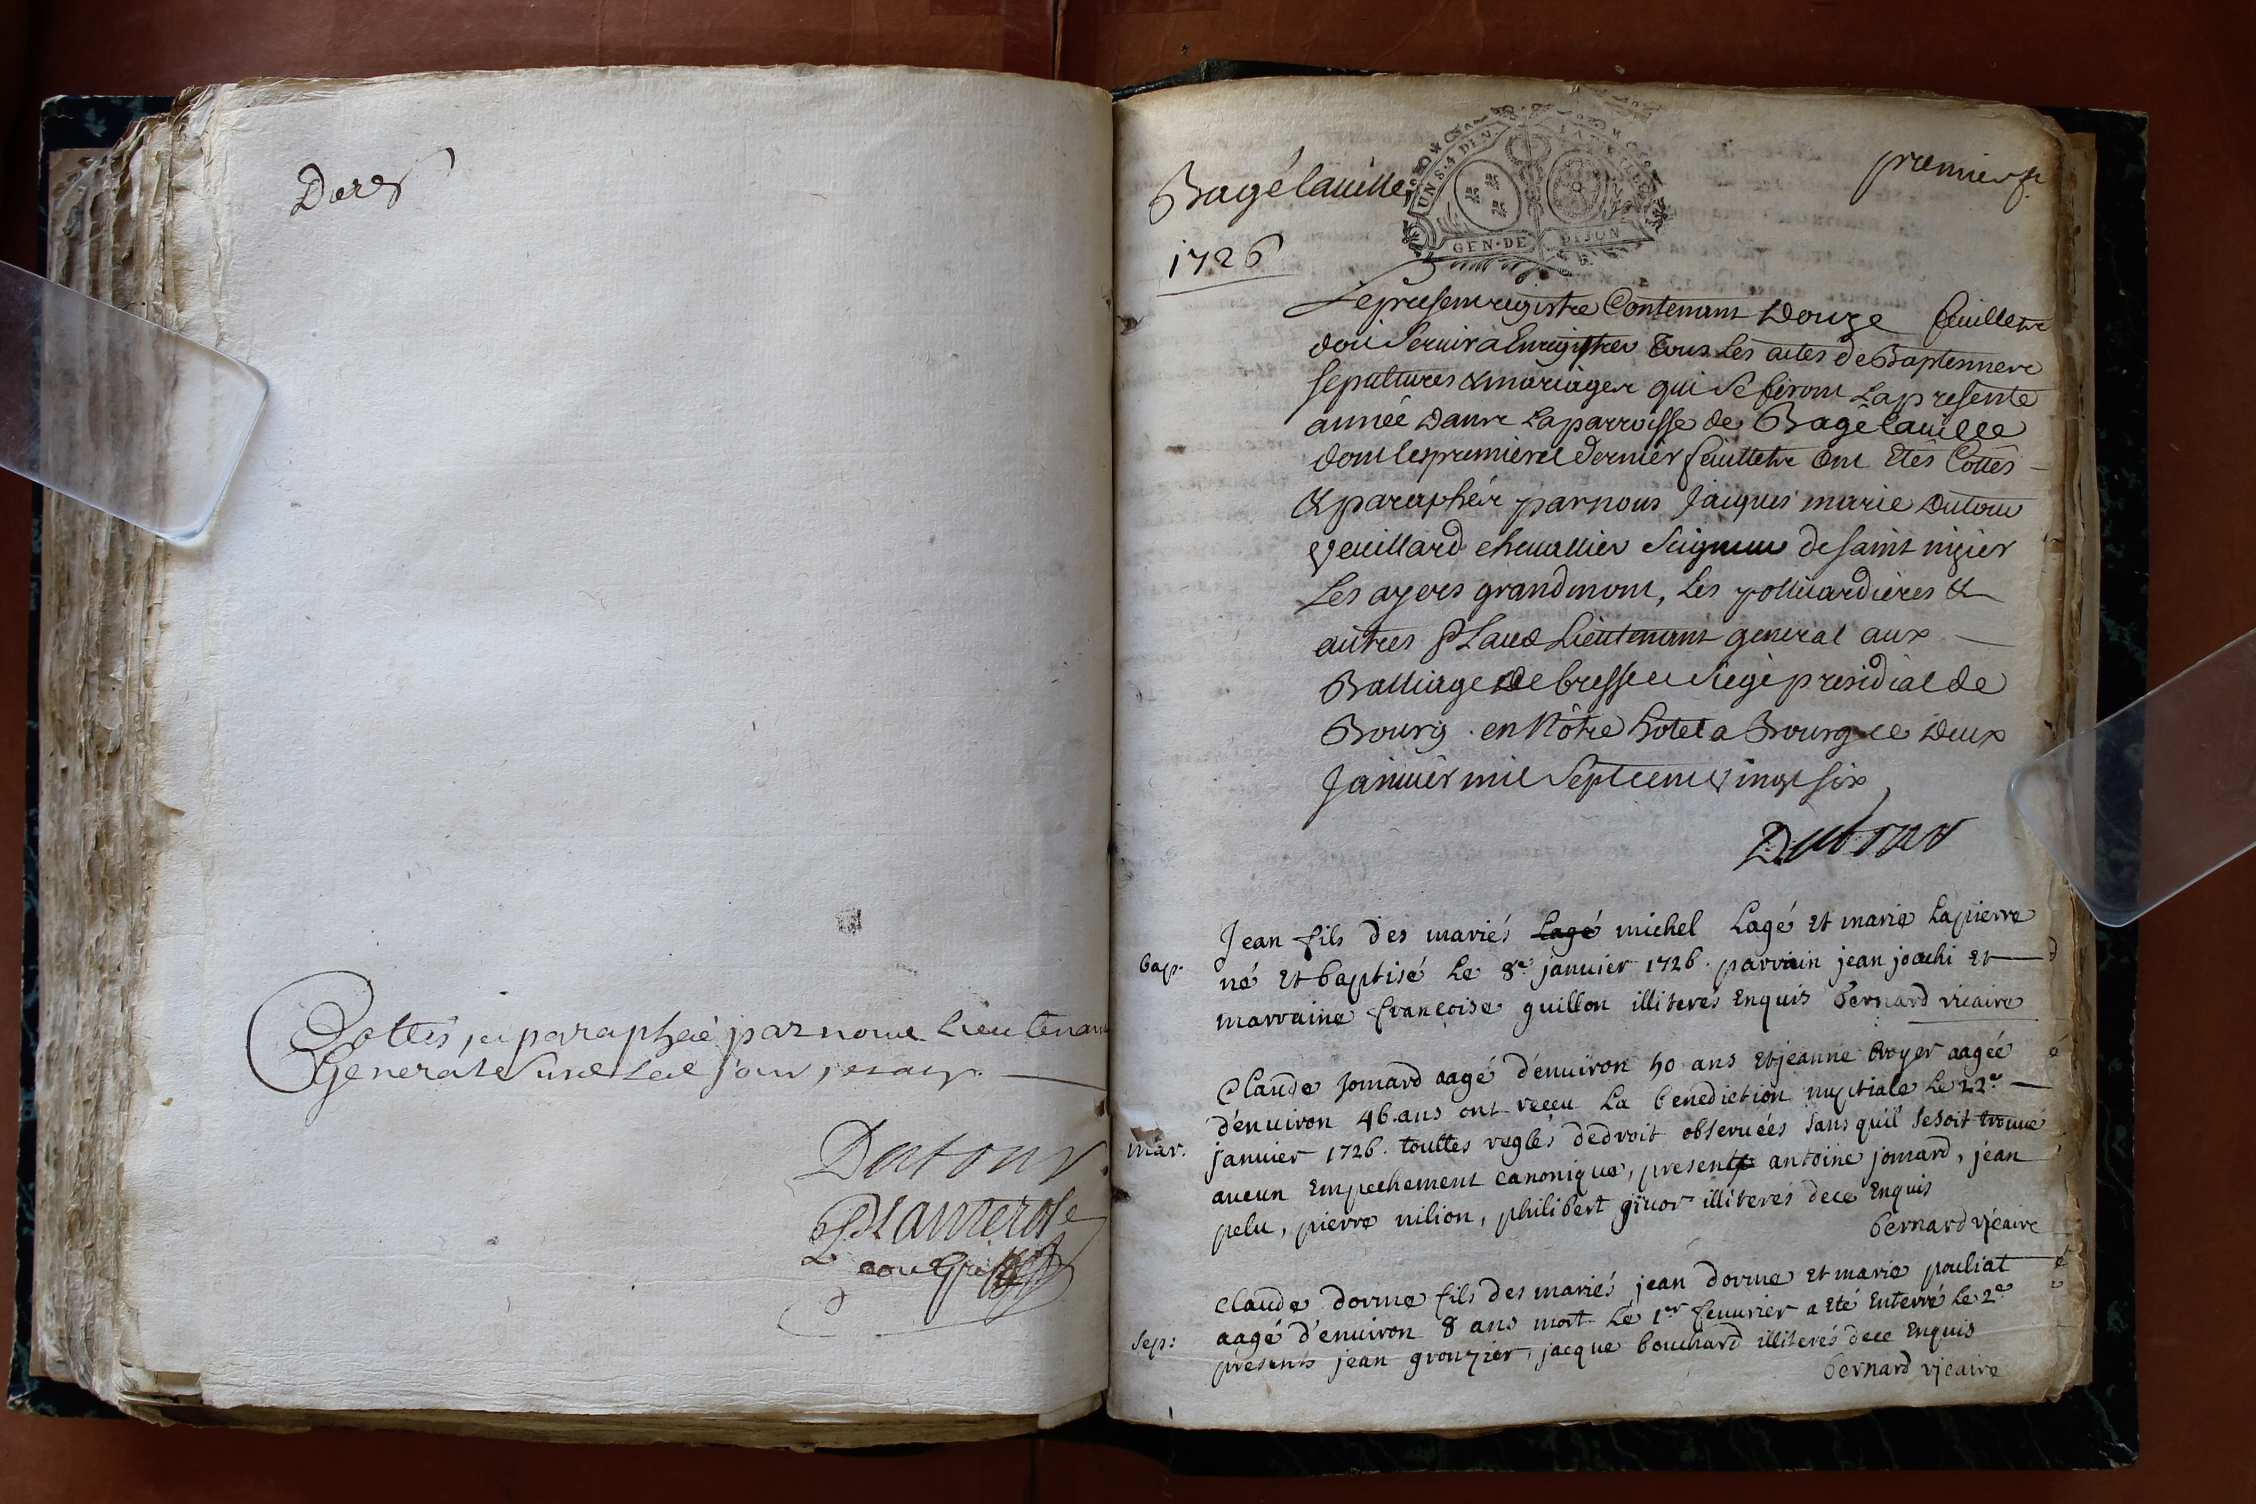 Cottés et paraphé par nous Lieutenant
General
Dutour
Bagélaville
premier f.
1726
UN S. 4 DEN.
GEN. DE DIJON
Le present registre Contenant Douze feuillets
doit Servir a Enregistrer Tous Les actes de Baptesmes
sepultures & mariages qui Se feront La presente
année Dans La parroisse de Bagélaville
dont les premier et Dernier feuillets ont Etés Cottés
& paraphés par nous Jacques marie Dutour
Veuillard chevallier Seigneur de saint nizier
Les ayers grandmont, Les
autres Lieutenant general aux
Balliage De bresse et Siege presidial de
Bourg. en Nôtre hôtel a Bourg ce Deux
Janvier mil Sept cent vingt six
Dutour
Jean fils des mariés Lagé michel Lagé et marie Lapierre
bap. né et baptisé Le 8e janvier 1726. parrain jean joachi et
marraine françoise guillon illiterés Enquis bernard vicaire
Claude Jomard aagé d'enuiron 50 ans et jeanne broyer aagée
d'enuiron 46 ans ont reçeu La benediction nuptiale Le 22e
mar. januier 1726. touttes regles de droit obseruéés sans qu'il se soit trouué
aucun Empechement canonique, present antoine jomard, jean
pelu, pierre nilion, philibert giuor illiterés de ce Enquis
bernard vicaire
Claude dorme fils des mariés jean dorme et marie pouliat
aagé d'enuiron 8 ans mort Le 1er feuurier a été Enterré Le 2e
sep: presents jean grouzier, jacque bouchard illiterés de ce Enquis
bernard vicaire